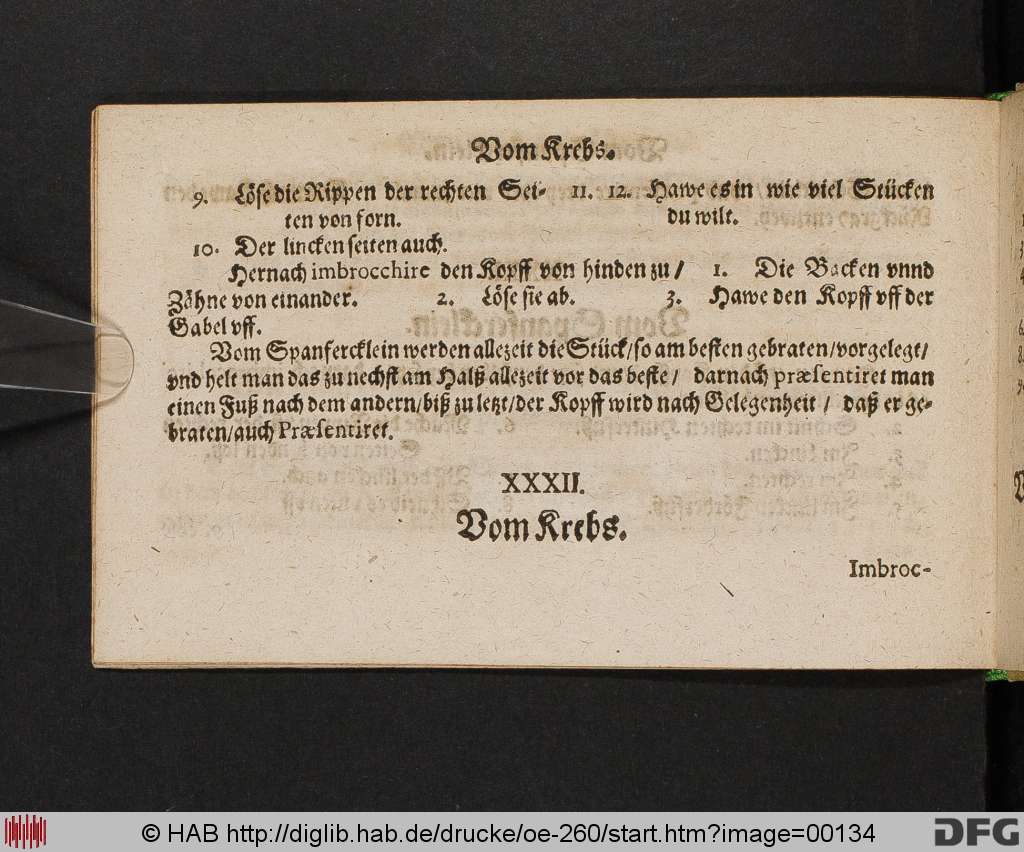 Vom Krebs.
9. Löse die Rippen der rechten Sei-
ten von forn.
10. Der lincken seiten auch.
11. 12. Hawe es in wie viel Stücken
du wilt.
Hernach imbrocchire den Kopff von hinden zu / 1. Die Backen vnnd
Zähne von einander. 2. Löse sie ab. 3. Hawe den Kopff vff der
Gabel vff.
Vom Spanfercklein werden allezeit die Stück/so am besten gebraten/vorgelegt/
vnd helt man das zu nechst am Halß allezeit vor das beste / darnach præsentiret man
einen Fuß nach dem andern/biß zu letzt/der Kopff wird nach Gelegenheit / daß er ge-
braten/auch Præsentiret.
XXXII.
Vom Krebs.
Imbroc-
© HAB http://diglib.hab.de/drucke/oe-260/start.htm?image=00134
DFG